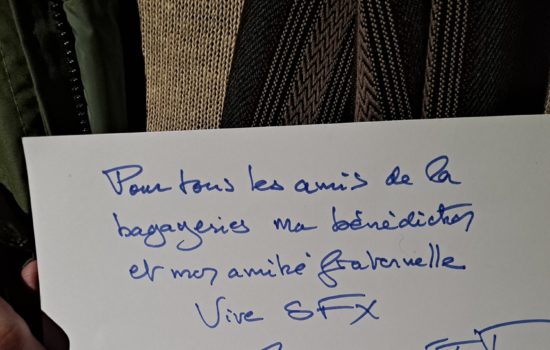 Pour tous les amis de la
bagageries ma bénédiction
et mon amitié fraternelle
Vive SFX